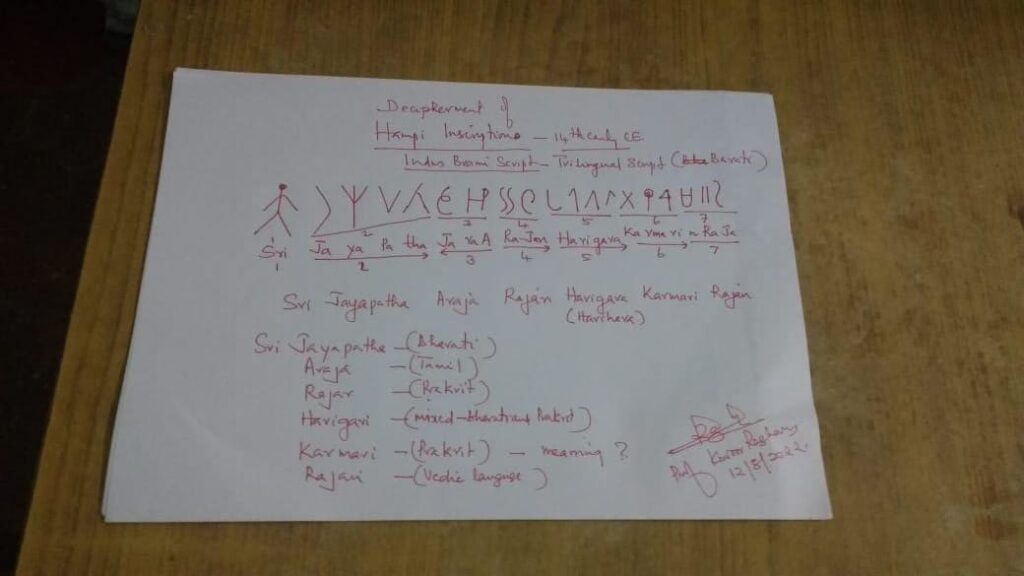 Decipherment of
Hampi Inscriptions – 14th cent, C.E.
Indus Brami Script – Trilingual Script (Barati)
Sri Ja ya Pa tha Ja ra A Ra-Jan Harigara Karmari n Ra Ja
1 2 3 4 5 6 7
Sri Jayapatha Araja Rajan Harigara Karmari Rajan
(Harihara)
Sri Jayapatha – (Bharati)
Araja – (Tamil)
Rajar – (Prakrit)
Harigari – (mixed – Prakrit)
Karmari – (Prakrit) – meaning ?
Rajan – (Vedic language)
Prof
12/8/2022